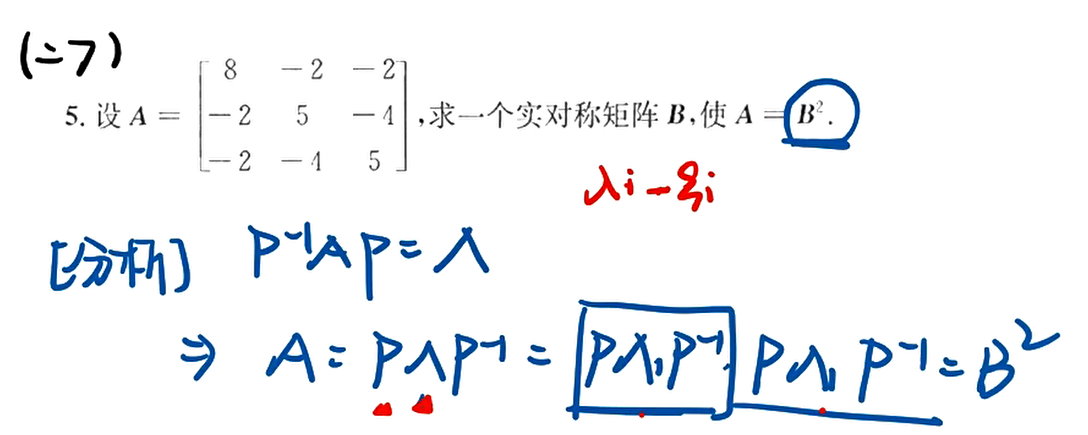 (二7)
5. 设 A = [ 8 −2 −2
−2 5 −4
−2 −4 5 ] ,求一个实对称矩阵 B,使 A = B².
λi − ξi
[分析] P⁻¹AP = Λ
⇒ A = PΛP⁻¹ = PΛ₁P⁻¹ PΛ₁P⁻¹ = B²